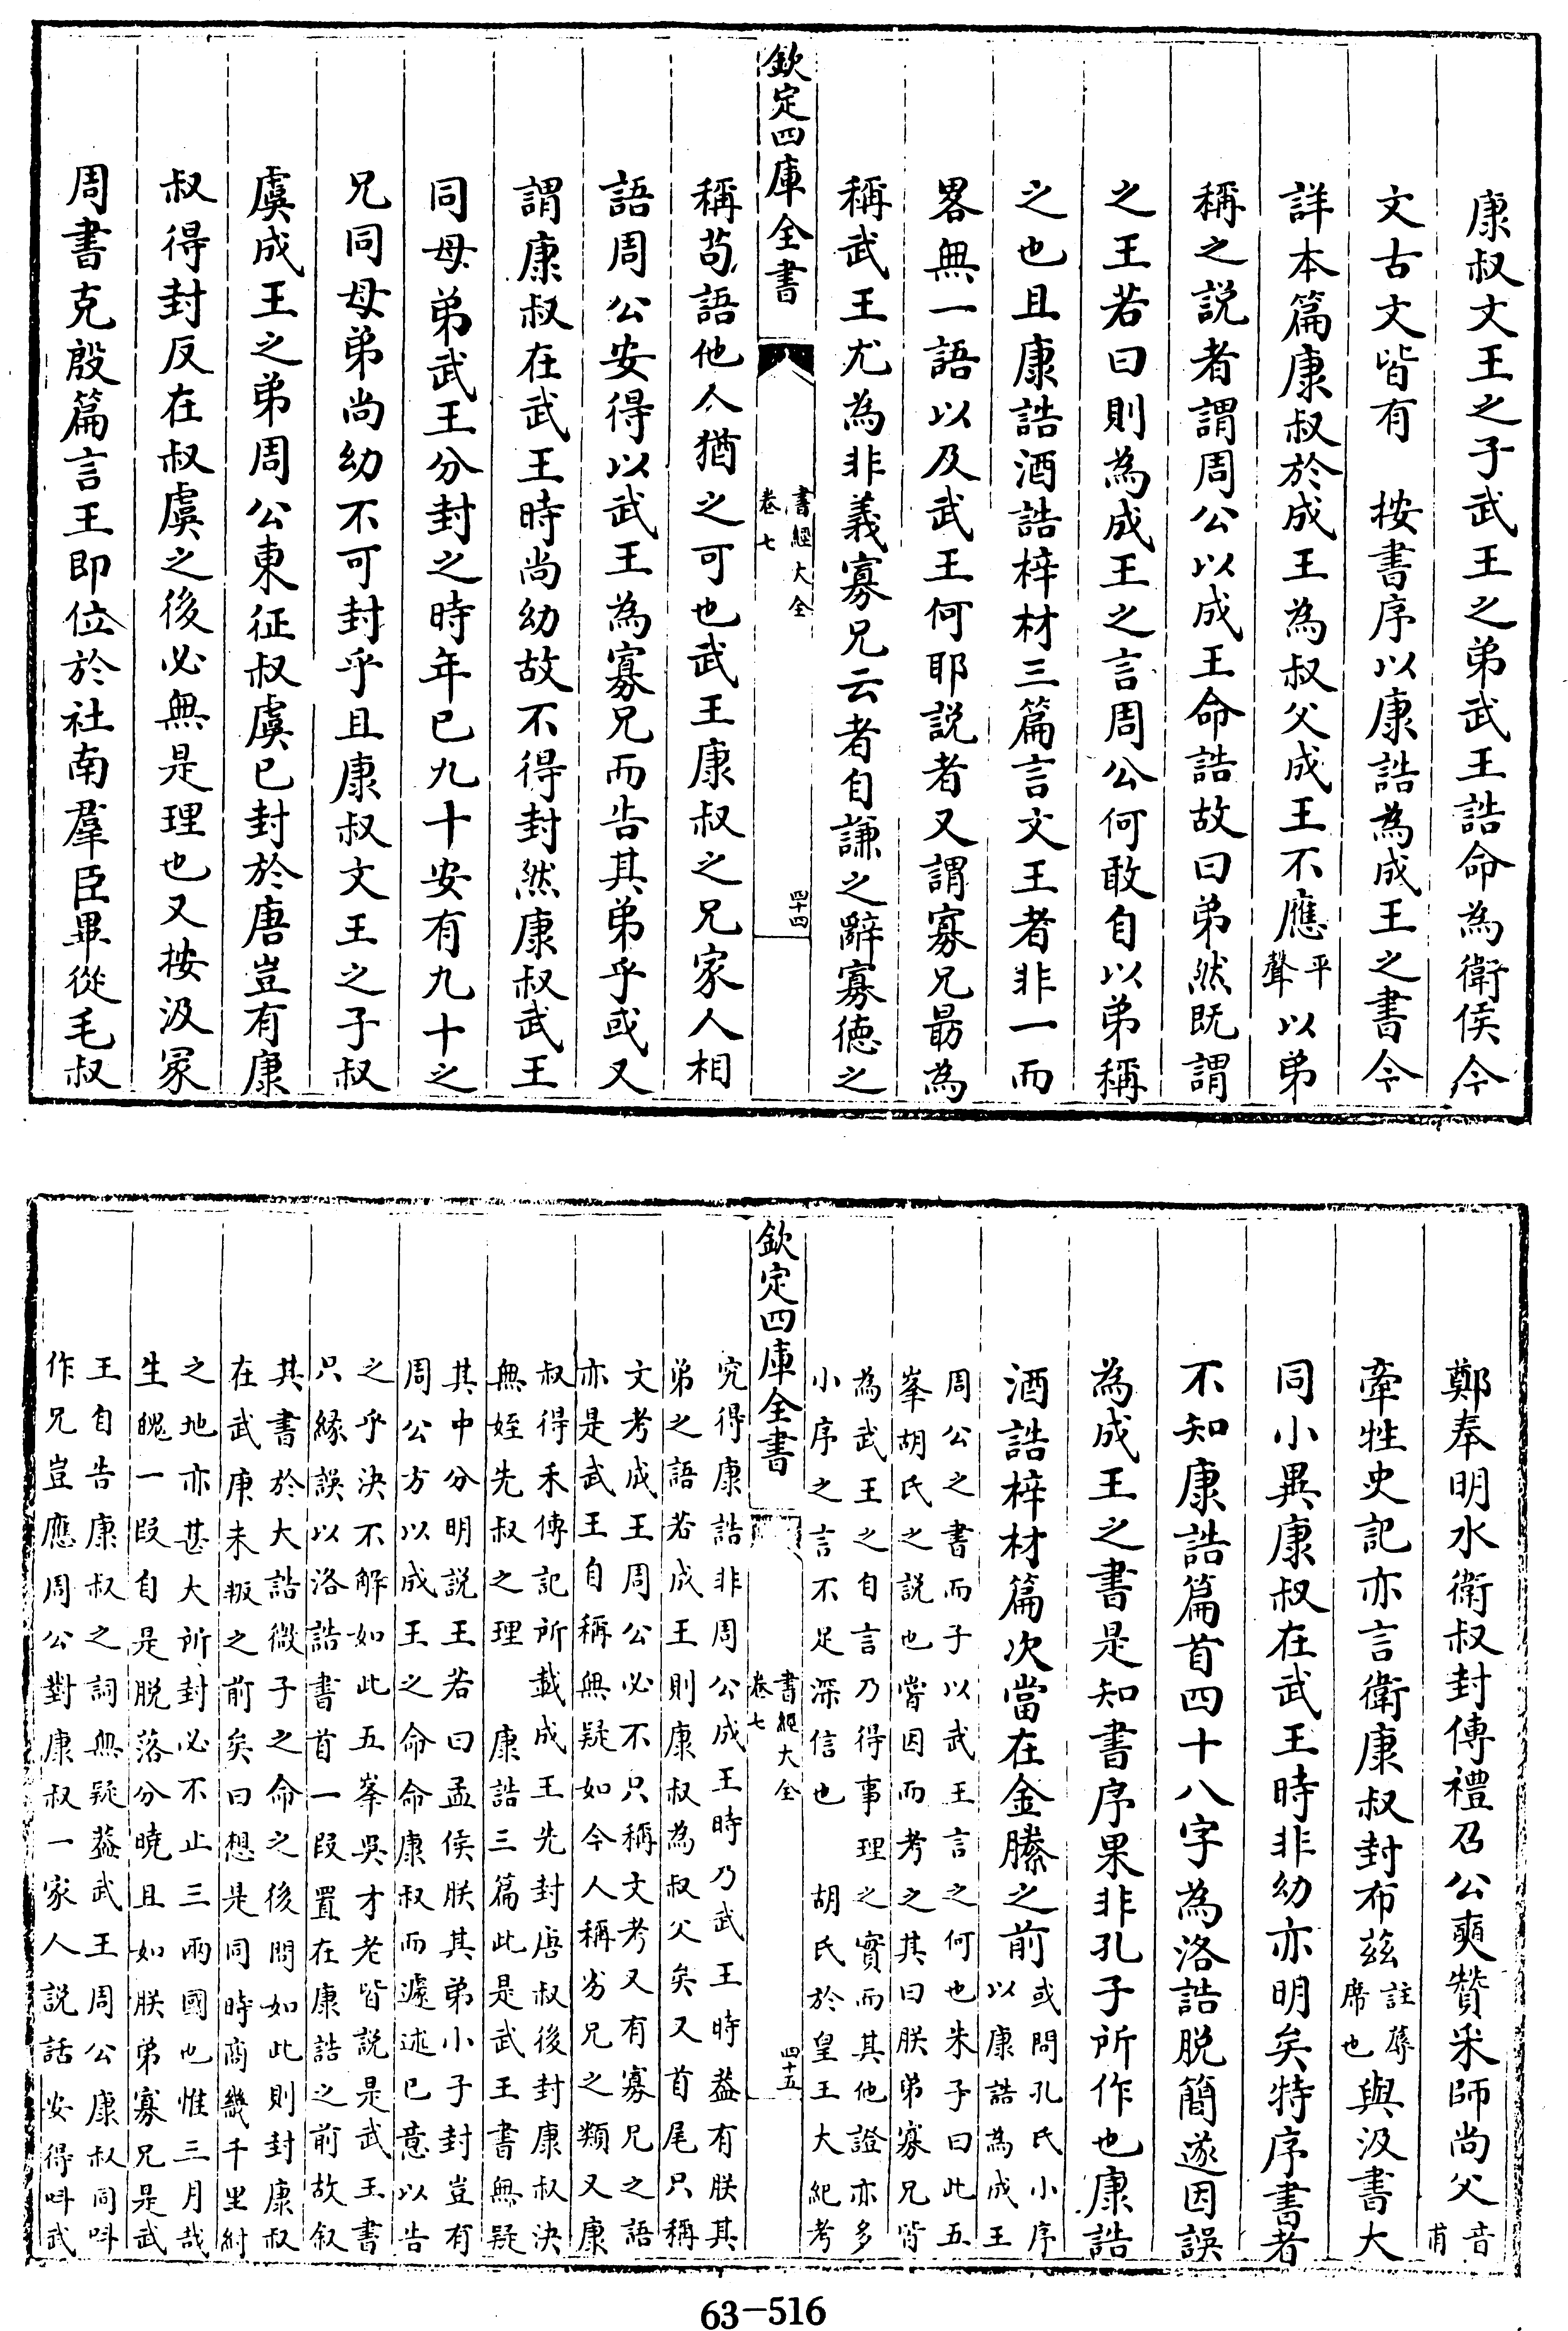 康叔文王之子武王之弟武王誥命為衛侯今
文古文皆有　按書序以康誥為成王之書今
詳本篇康叔於成王為叔父成王不應平聲以弟
稱之説者謂周公以成王命誥故曰弟然既謂
之王若曰則為成王之言周公何敢自以弟稱
之也且康誥酒誥梓材三篇言文王者非一而
畧無一語以及武王何耶説者又謂寡兄最為
稱武王尤為非義寡兄云者自謙之辭寡德之
欽定四庫全書
書經大全
卷七
四十四
稱苟語他人猶之可也武王康叔之兄家人相
語周公安得以武王為寡兄而告其弟乎或又
謂康叔在武王時尚幼故不得封然康叔武王
同母弟武王分封之時年已九十安有九十之
兄同母弟尚幼不可封乎且康叔文王之子叔
虞成王之弟周公東征叔虞已封於唐豈有康
叔得封反在叔虞之後必無是理也又按汲冢
周書克殷篇言王即位於社南羣臣畢從毛叔
鄭奉明水衛叔封傳禮召公奭贊采師尚父音甫
牽牲史記亦言衛康叔封布兹註蓐席也與汲書大
同小異康叔在武王時非幼亦明矣特序書者
不知康誥篇首四十八字為洛誥脱簡遂因誤
為成王之書是知書序果非孔子所作也康誥
酒誥梓材篇次當在金縢之前
或問孔氏小序
以康誥為成王
周公之書而子以武王言之何也朱子曰此五
峯胡氏之説也嘗因而考之其曰朕弟寡兄皆
為武王之自言乃得事理之實而其他證亦多
小序之言不足深信也　胡氏於皇王大紀考
欽定四庫全書
書經大全
卷七
四十五
究得康誥非周公成王時乃武王時葢有朕其
弟之語若成王則康叔為叔父矣又首尾只稱
文考成王周公必不只稱文考又有寡兄之語
亦是武王自稱無疑如今人稱劣兄之類又康
叔得禾傳記所載成王先封唐叔後封康叔決
無姪先叔之理　康誥三篇此是武王書無疑
其中分明説王若曰孟侯朕其弟小子封豈有
周公方以成王之命命康叔而遽述已意以告
之乎決不解如此五峯吳才老皆説是武王書
只緣誤以洛誥書首一段置在康誥之前故叙
其書於大誥微子之命之後問如此則封康叔
在武庚未叛之前矣曰想是同時商畿千里紂
之地亦甚大所封必不止三兩國也惟三月哉
生魄一段自是脱落分曉且如朕弟寡兄是武
王自告康叔之詞無疑葢武王周公康叔同呌
作兄豈應周公對康叔一家人説話安得呌武
63-516